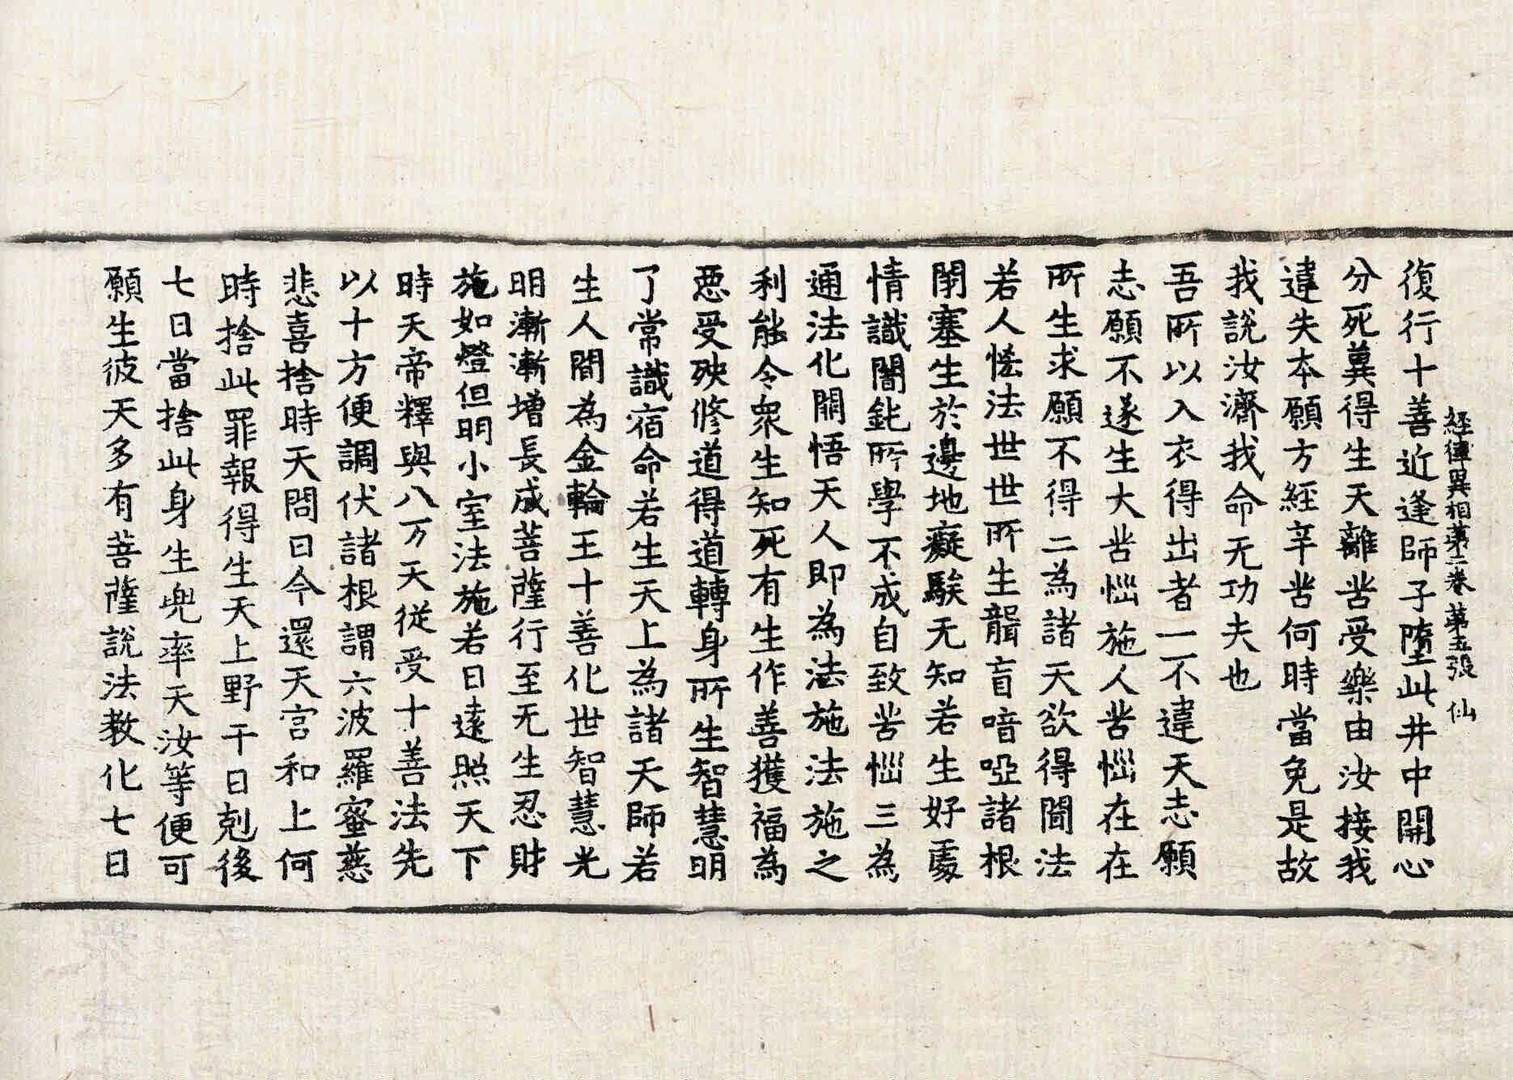 經律異相第二卷 第五張 仙
復行十善近逢師子墮此井中開心
分死冀得生天離苦受樂由汝接我
違失本願方經辛苦何時當免是故
我說汝濟我命无功夫也
吾所以入衣得出者一不違天志願
志願不遂生大苦惱施人苦惱在在
所生求願不得二為諸天欲得聞法
若人悋法世世所生聾盲喑啞諸根
閉塞生於邊地癡騃无知若生好處
情識闇鈍所學不成自致苦惱三為
通法化開悟天人即為法施法施之
利能令眾生知死有生作善獲福為
惡受殃修道得道轉身所生智慧明
了常識宿命若生天上為諸天師若
生人間為金輪王十善化世智慧光
明漸漸增長成菩薩行至无生忍財
施如燈但明小室法施若日遠照天下
時天帝釋與八万天從受十善法先
以十方便調伏諸根謂六波羅蜜慈
悲喜捨時天問曰今還天宮和上何
時捨此罪報得生天上野干曰剋後
七日當捨此身生兜率天汝等便可
願生彼天多有菩薩說法教化七日